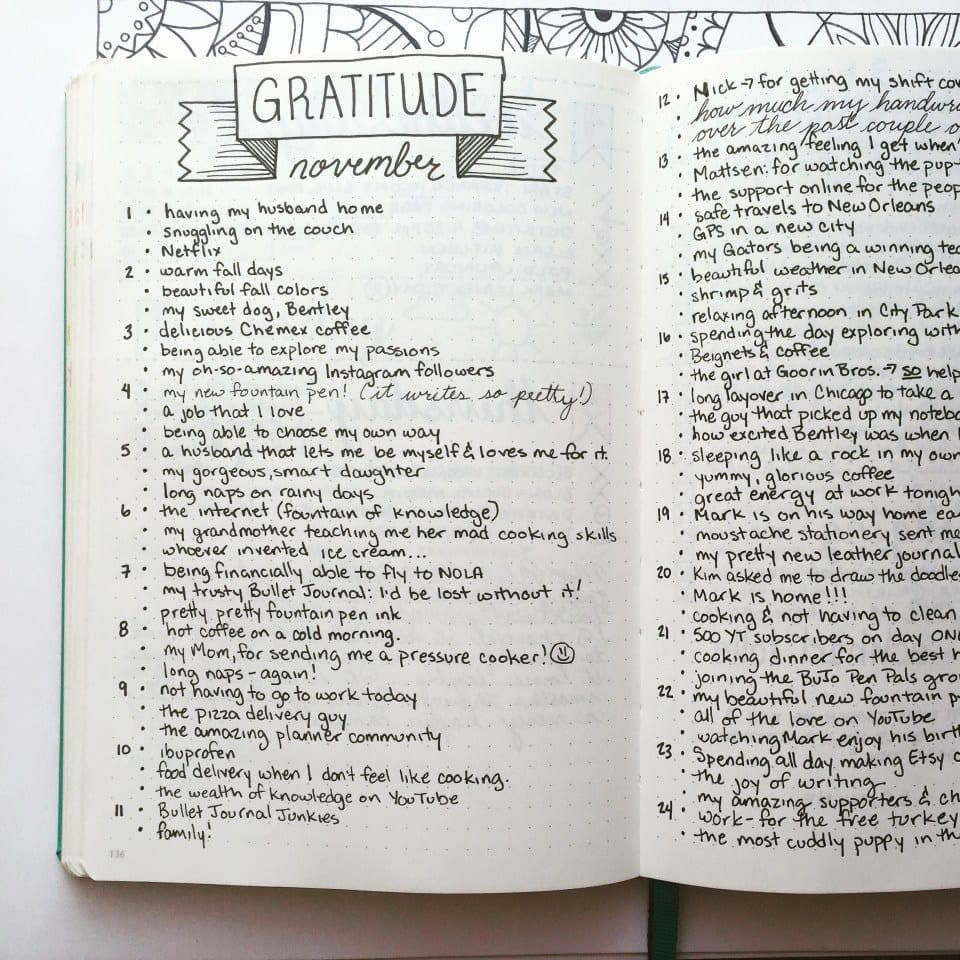 GRATITUDE
november
1 • having my husband home
• snuggling on the couch
• Netflix
2 • warm fall days
• beautiful fall colors
• my sweet dog, Bentley
3 • delicious Chemex coffee
• being able to explore my passions
• my oh-so-amazing Instagram followers
4 • my new fountain pen! (it writes so pretty!)
• a job that I love
• being able to choose my own way
5 • a husband that lets me be myself & loves me for it.
• my gorgeous, smart daughter
• long naps on rainy days
6 • the internet (fountain of knowledge)
• my grandmother teaching me her mad cooking skills
• whoever invented ice cream...
7 • being financially able to fly to NOLA
• my trusty Bullet Journal: I'd be lost without it!
• pretty pretty fountain pen ink
8 • hot coffee on a cold morning.
• my Mom, for sending me a pressure cooker! ☺
• long naps - again!
9 • not having to go to work today
• the pizza delivery guy
• the amazing planner community
10 • ibuprofen
• food delivery when I don't feel like cooking.
• the wealth of knowledge on YouTube
11 • Bullet Journal Junkies
• family!
136
12 • Nick → for getting my shift
• how much my
• over the past couple
13 • the amazing feeling I get when
• Mattsen: for watching the
• the support online for the
14 • safe travels to New Orleans
• GPS in a new city
• my Gators being a winning
15 • beautiful weather in New
• shrimp & grits
• relaxing afternoon in City Park
16 • spending the day exploring
• Beignets & coffee
• the girl at Goorin Bros. → so
17 • long layover in Chicago to take a
• the guy that picked up my
• how excited Bentley was when
18 • sleeping like a rock in my own
• yummy, glorious coffee
• great energy at work
19 • Mark is on his way home
• moustache stationery sent
• my pretty new leather journal
20 • Kim asked me to draw the doodles
• Mark is home!!!
• cooking & not having to clean
21 • 500 YT subscribers on day
• cooking dinner for the best
• joining the BuJo Pen Pals
22 • my beautiful new fountain
• all of the love on YouTube
• watching Mark enjoy his
23 • Spending all day making Etsy
• the joy of writing
• my amazing supporters &
24 • work - for the free turkey
• the most cuddly puppy in